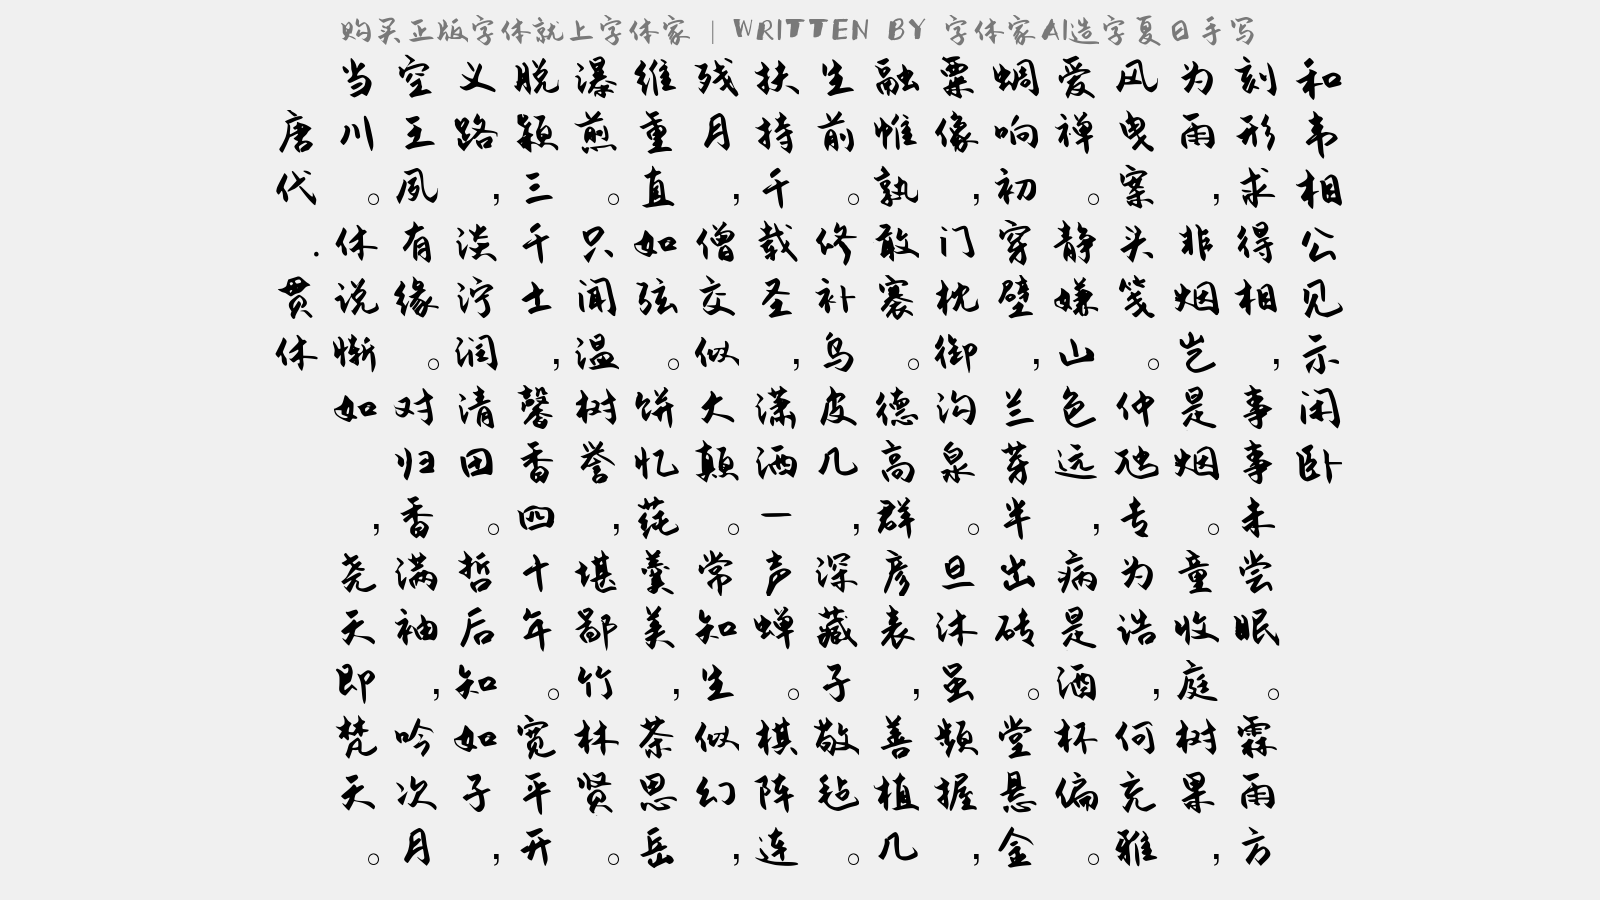 购买正版字体就上字体家 | WRITTEN BY 字体家AI造字夏日手写
和韦相公见示闲卧
刻形求得相，事事未尝眠。霖雨方
为雨，非烟岂是烟。童收庭树果，
风曳案头笺。仲虺专为诰，何充雅
爱禅。静嫌山色远，病是酒杯偏。
蜩响初穿壁，兰芽半出砖。堂悬金
粟像，门枕御沟泉。旦沐虽频握，
融帷孰敢褰。德高群彦表，善植几
生前。修补乌皮几，深藏子敬毡。
扶持千载圣，潇洒一声蝉。棋阵连
残月，僧交似大颠。常知生似幻，
维重直如弦。饼忆莼羹美，茶思岳
瀑煎。只闻温树誉，堪鄙竹林贤。
脱颖三千士，馨香四十年。宽平开
义路，淡泞润清田。哲后知如子，
空王夙有缘。对归香满袖，吟次月
当川。休说惭如，尧天即梵天。
唐代.贯休